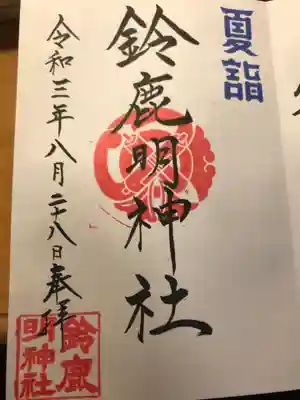 夏詣
鈴鹿明神社
令和三年八月二十八日奉拝
鈴鹿
明神社